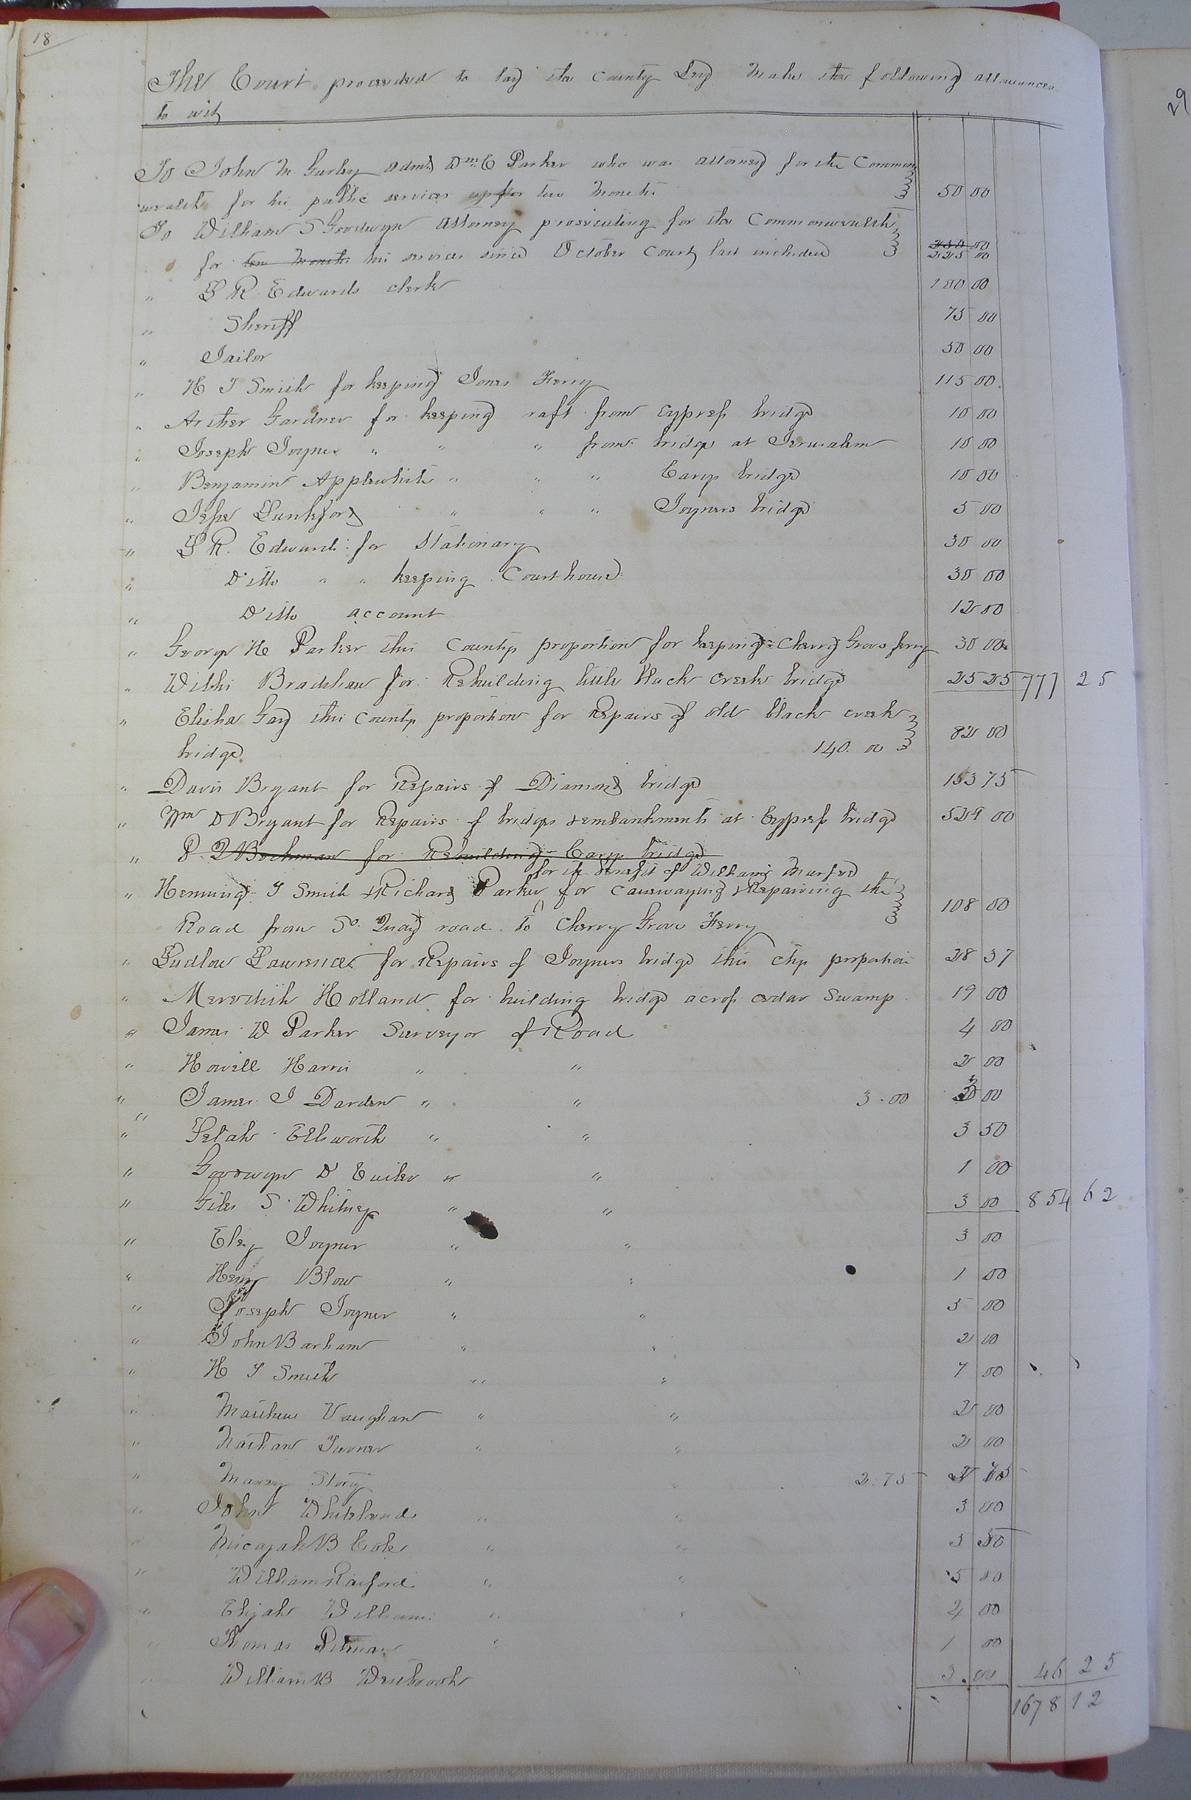 18
The Court proceeded to lay the County Levy & Make the following allowances
to wit
29
To John M Gurley Adm's Wm C Parker who was attorney for the Common
wealth for his public services up for two Months 50 00
To William S Goodwyn Attorney prosecuting for the Commonwealth
for ten Months his services since October Court last included 225 00
" L R Edwards clerk 100 00
" Sheriff 75 00
" Jailor 50 00
" H J Smith for keeping Jones Ferry 115 00
" Archer Gardner for keeping raft from Cypress bridge 10 00
" Joseph Joyner " " " from bridge at Jerusalem 10 00
" Benjamin Applewhite " " " Carys bridge 10 00
" Jesse Lankford " " " Joyners bridge 5 00
" L R. Edwards for Stationary 30 00
" Ditto " " keeping Courthouse 30 00
" Ditto account 12 00
" George H Parker this Countys proportion for keeping Cherry Grove ferry 30 00
" Willis Bradshaw for Rebuilding little black creek bridge 25 25 777 25
" Elisha Gay this Countys proportion for Repairs of old black creek
bridge 140.00 82 00
" Davis Bryant for Repairs of Diamond bridge 153 75
" Wm D Bryant for Repairs of bridge & embankments at Cypress bridge 524 00
" for Rebuilding Carys bridge
for the benefit of William Murfee
" Henning J Smith & Richard Parker for causwaying & Repairing the
Road from So. Quay road to Cherry Grove Ferry 108 00
" Ludlow Lawrence for Repairs of Joyners bridge this ctys proportion 28 37
" Meredith Holland for building bridge across cedar Swamp 19 00
" James W Parker Surveyor of Road 4 00
" Howell Harris " " 2 00
" James J Darden " " 3.00 3 00
" Selah Ellsworth " " 3 50
" Goodwyn D " " 1 00
" Giles S. Whitney " " 3 00 854 62
" Eley Joyner " " 3 00
" Henry Blow " " 1 00
" Joseph Joyner " " 5 00
" John Barham " " 2 00
" H J Smith " " 7 00
" Matthew Vaughan " " 2 00
" Nathan Turner " " 2 00
" Story 2.75 2 75
" John Whitehead " " 3 00
" Micajah B Cole " " 3 50
" William Raiford " " 5 00
" Elijah Williams " " 2 00
" Thomas Pitman " 1 00
" William B Westbrook 3.00 46 25
1678 12